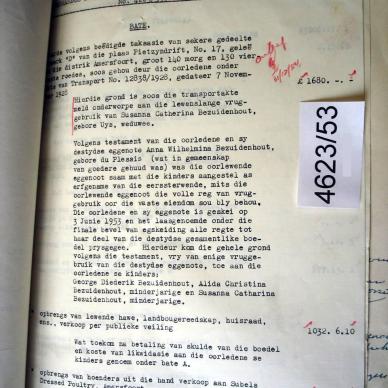 BATE.
rde volgens beëdigde taksasie van sekere gedeelte
erk "D" van die plaas Fietzyndrift, No. 17, geleë
ie distrik Amersfoort, groot 140 morg en 130 vier
nte roedes, soos gehou deur die oorledene onder
te van Transport No. 12838/1928, gedateer 7 Novem-
1928
£ 1680. -. -
Hierdie grond is soos die transportakte
meld onderworpe aan die lewenslange vrug-
gebruik van Susanna Catharina Bezuidenhout,
gebore Uys, weduwee.
Volgens testament van die oorledene en sy
destydse eggenote Anna Wilhelmina Bezuidenhout,
gebore du Plessis (wat in gemeenskap
van goedere gehuud was) was die oorlewende
eggenoot saam met die kinders aangestel as
erfgename van die eerssterwende, mits die
oorlewende eggenoot die volle reg van vrug-
gebruik oor die vaste eiendom sou bly behou.
Die oorledene en sy eggenote is geskei op
3 Junie 1953 en het laasgenoemde onder die
finale bevel van egskeiding alle regte tot
haar deel van die destydse gesamentlike boe-
del prysgegee. Hierdeur kom die gehele grond
volgens die testament, vry van enige vrugge-
bruik van die destydse eggenote, toe aan die
oorledene se kinders;
George Diederik Bezuidenhout, Alida Christina
Bezuidenhout, minderjarige en Susanna Catharina
Bezuidenhout, minderjarige.
4623/53
opbrengs van lewende hawe, landbougereedskap, huisraad,
ens., verkoop per publieke veiling
1032. 6.10
Wat toekom na betaling van skulde van die boedel
en koste van likwidasie aan die oorledene se
kinders genoem onder bate A.
opbrengs van hoenders uit die hand verkoop aan Sabela
Dressed Poultry, Amersfoort